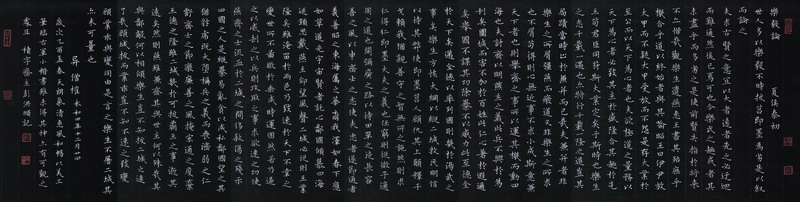 樂毅論
夏侯泰初
世人多以樂毅不時拔莒即墨為劣是以敘
而論之
夫求古賢之意宜以大者遠者先之必迂迴
而難通然後已焉可也今樂氏之趣或者其
未盡乎而多劣之是使前賢失指於將來
不亦惜哉觀樂生遺燕惠王書其殆庶乎
機合乎道以終始者與其喻昭王曰伊尹放
大甲而不疑大甲受放而不怨是存大業於
至公而以天下為心者也夫欲極道之量務以
天下為心者必致其主於盛隆合其趣於先
王苟君臣同符斯大業定矣于斯時也樂生
之志千載一遇也亦將行千載一隆之道豈其
局蹟當時止於兼并而已哉夫兼并者非
樂生之所屑彊燕而廢道又非樂生之所求
也不屑苟得則心無近事不求小成斯意兼
天下者也則舉齊之事所以運其機而動四
海也夫討齊以明燕主之義此兵不興於為
利矣圍城而害不加於百姓此仁心著於遐邇
矣舉國不謀其功除暴不以威力此至德全
於天下矣邁全德以率列國則幾於湯武之
事矣樂生方恢大綱以縱二城牧民明信
以待其弊使即墨莒人顧仇其上願釋干
戈賴我猶親善守之智無所之施然則求
仁得仁即墨大夫之義也任窮則從微子適
周之道也開彌廣之路以待田單之徒長容
善之風以申齊士之志使夫忠者遂節通者
義著昭之東海屬之華裔我澤如春下應
如草道光宇宙賢者託心鄰國傾慕四海
延頸思戴燕主仰望風聲二城必從則王業
隆矣雖淹留於兩邑乃致速於天下不幸之
變世所不圖敗於垂成時運固然若乃逼
之以威劫之以兵則攻取之事求欲速之功使
燕齊之士流血於二城之間侈殺傷之殘示
四國之人是縱暴易亂貪以成私鄰國望之其
猶豺虎既大墮稱兵之義而喪濟弱之仁
虧齊士之節廢廉善之風掩宏通之度棄
王德之隆雖二城幾於可拔霸王之事逝其
遠矣然則燕雖兼齊其與世主何以殊哉其
與鄰敵何以相傾樂生豈不知拔二城之速
了哉顧城拔而業乖豈不知不速之致變
顧業乖與變同由是言之樂生不屠二城其
亦未可量也
異僧權 永和四年十二月廿四
春天朗氣清惠風和暢於義工
小楷書雖未得其神亦有可觀之
處且積字齋主彭洪順記